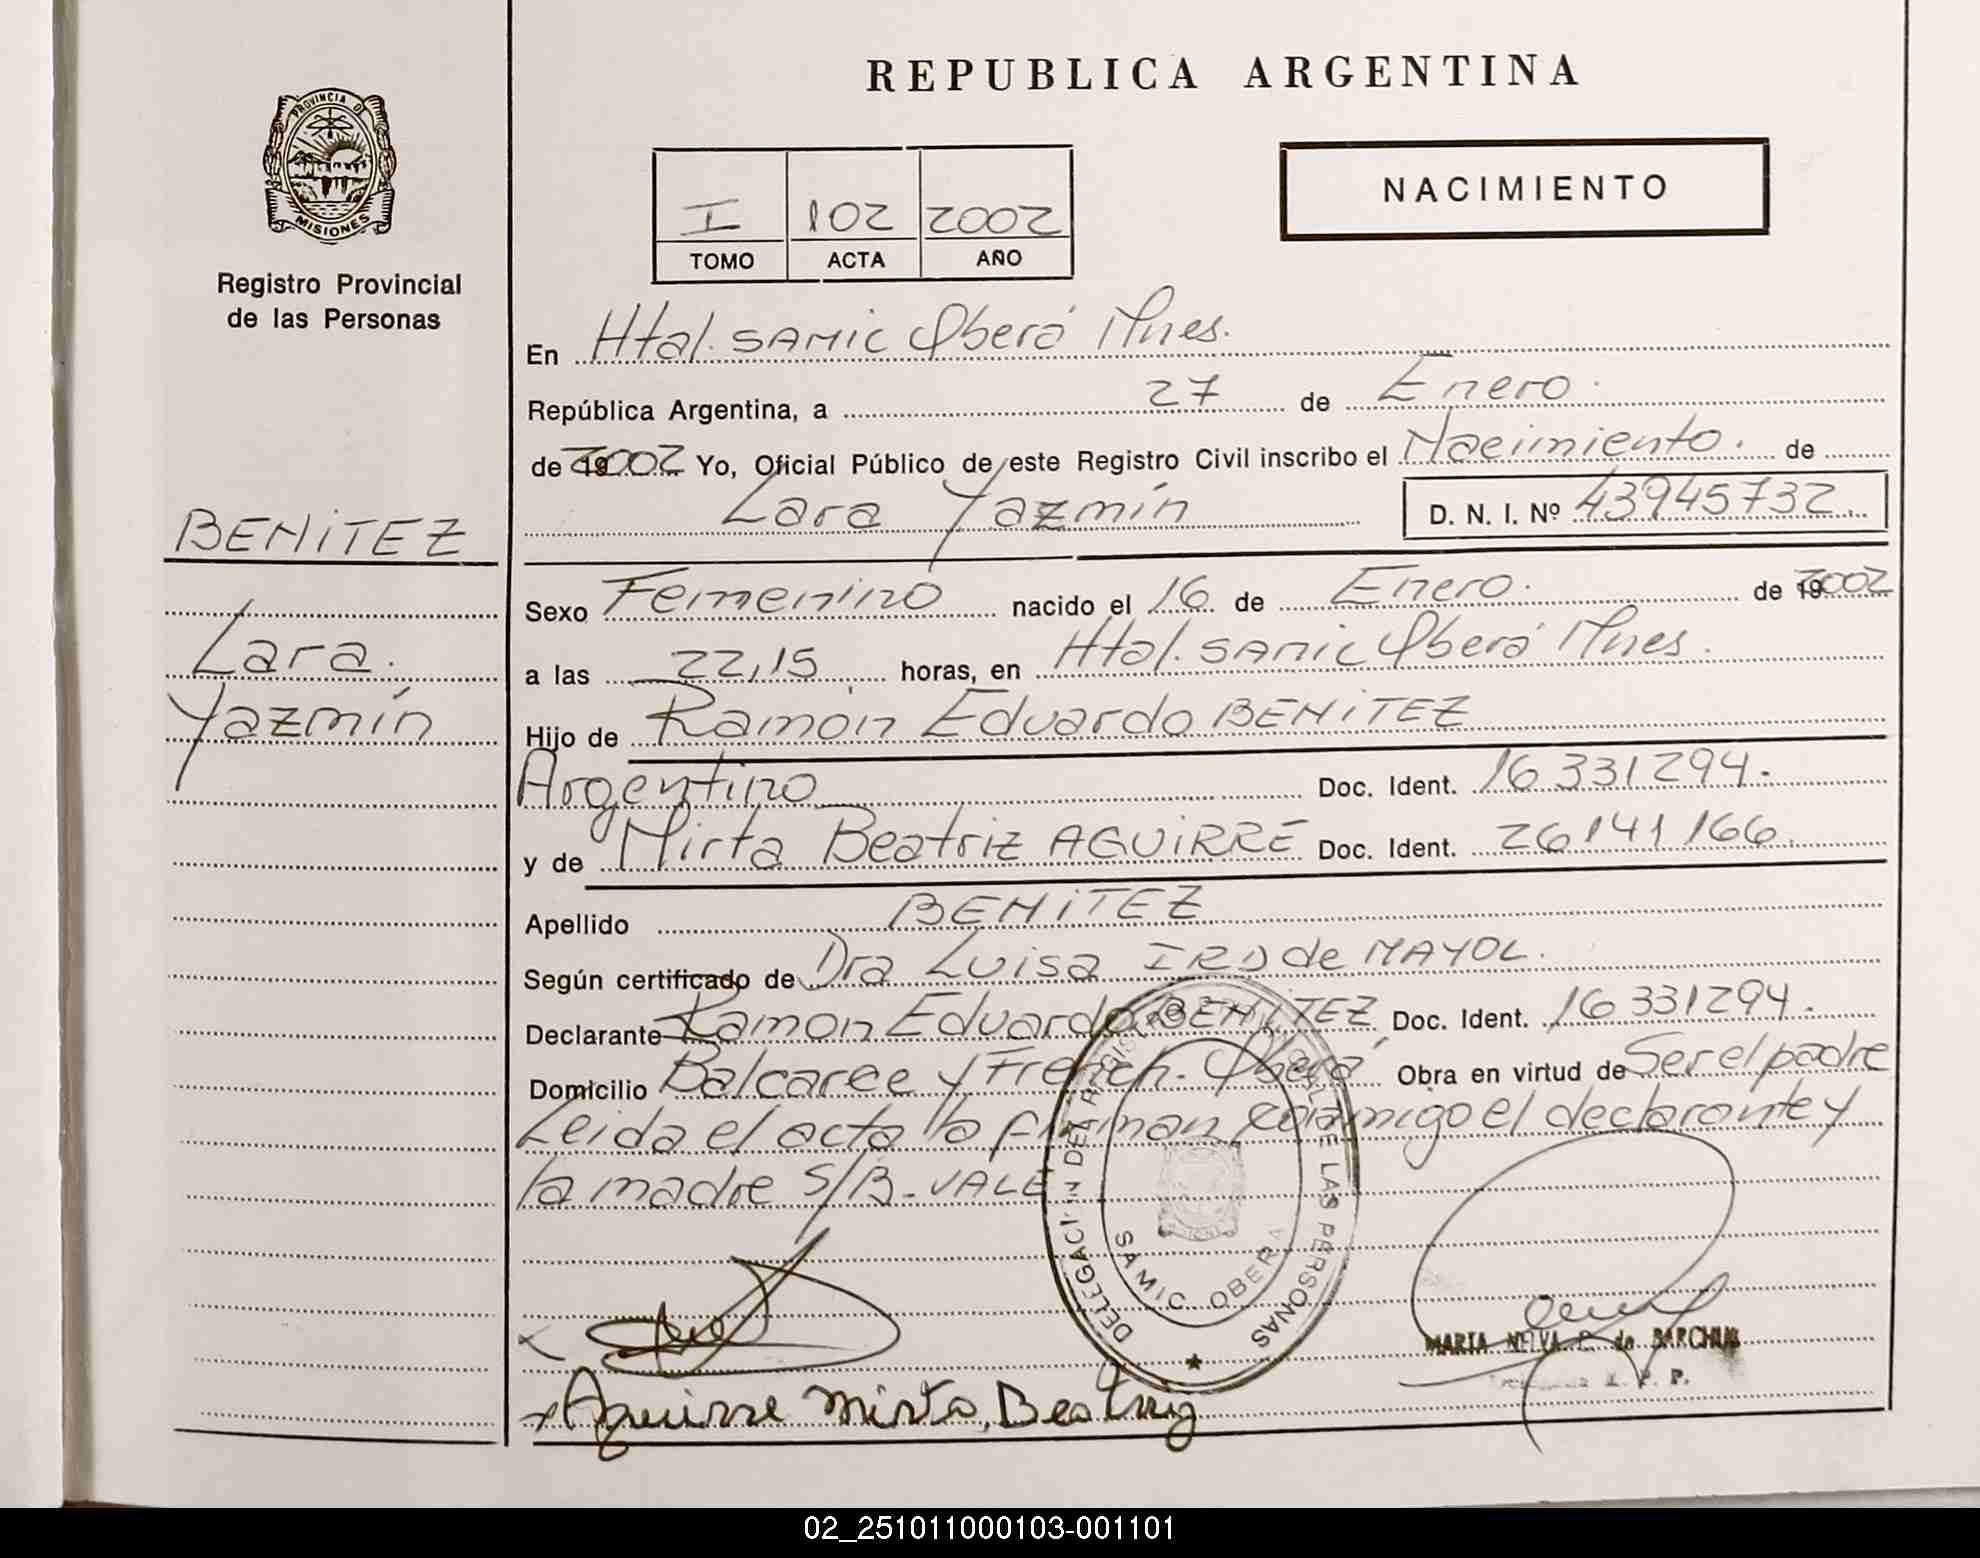 REPUBLICA ARGENTINA
PROVINCIA DE
MISIONES
Registro Provincial
de las Personas
I 102 2002
TOMO ACTA AÑO
NACIMIENTO
En Htal. SAMIC Oberá Mnes.
República Argentina, a 27 de Enero.
de 2002 Yo, Oficial Público de este Registro Civil inscribo el Nacimiento. de
Lara Yazmín D. N. I. Nº 43945732
BENiTEZ
Lara.
Yazmín
Sexo Femenino nacido el 16 de Enero. de 2002
a las 22,15 horas, en Htal. SAMIC Oberá Mnes.
Hijo de Ramón Eduardo BENiTEZ
Argentino Doc. Ident. 16 331294.
y de Mirta Beatriz AGUiRRE Doc. Ident. 26141166.
Apellido BENiTEZ
Según certificado de Dra Luisa de MAYOL.
Declarante Ramon Eduardo BENiTEZ Doc. Ident. 16 331294.
Domicilio Balcarce y French. Oberá Obra en virtud de Ser el padre
Leida el acta la firman conmigo el declarante y
la madre S/B. VALE
DELEGACION DEL REGISTRO PROVINCIAL DE LAS PERSONAS
SAMIC OBERA
MARIA NELVA de
Aguirre Mirta, Beatriz
02_251011000103-001101